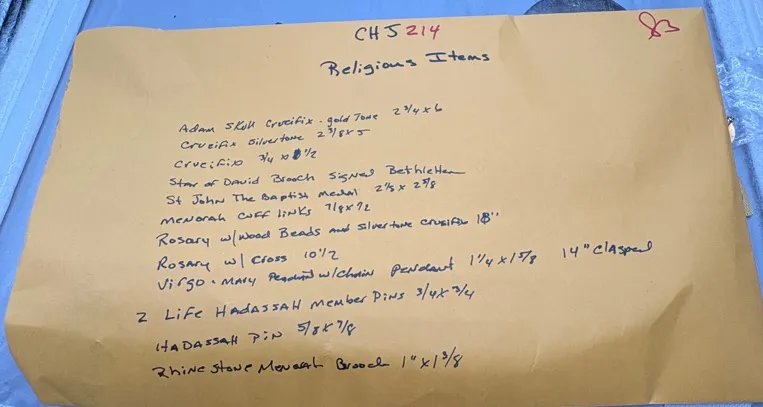 CHJ 214
83
Religious Items
Adam Skull Crucifix - gold Tone 2 3/4 x 6
Crucifix Silvertone 2 3/8 x 5
Crucifix 3/4 x 1/2
Star of David Brooch Signed Bethlehem
St John The Baptist Medal 2 1/8 x 2 5/8
Menorah Cuff Links 7/8 x 1/2
Rosary w/Wood Beads and Silvertone Crucifix 18"
Rosary w/ Cross 10 1/2
Virgo - Mary Pendant w/chain pendant 1 1/4 x 1 5/8 14" Clasped
2 Life HADASSAH Member Pins 3/4 x 3/4
HADASSAH Pin 5/8 x 7/8
Rhinestone Menorah Brooch 1" x 1 3/8